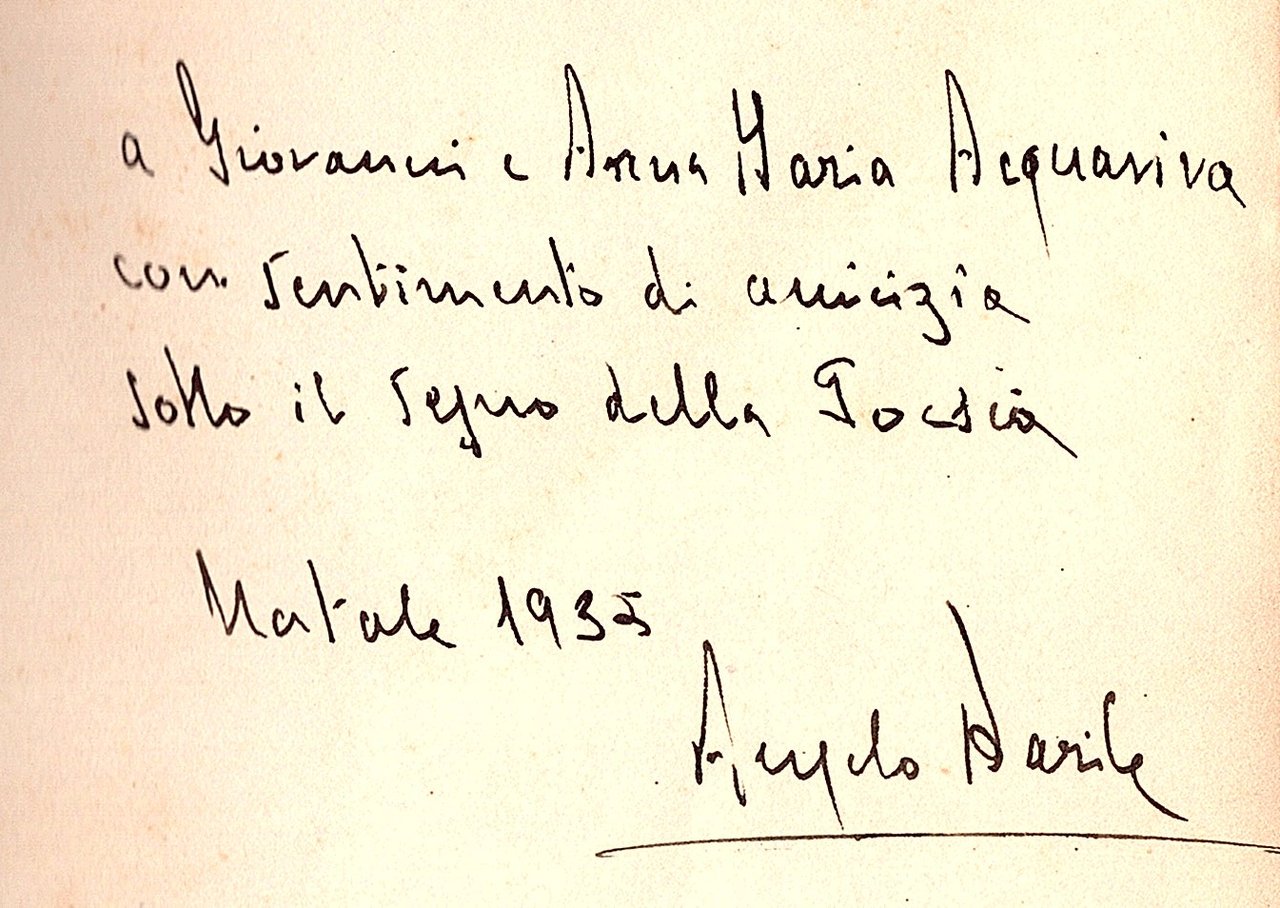 a Giovanni e Anna Maria Acquaviva
con sentimento di amicizia
sotto il segno della Poesia
Natale 1935
Angelo Barile